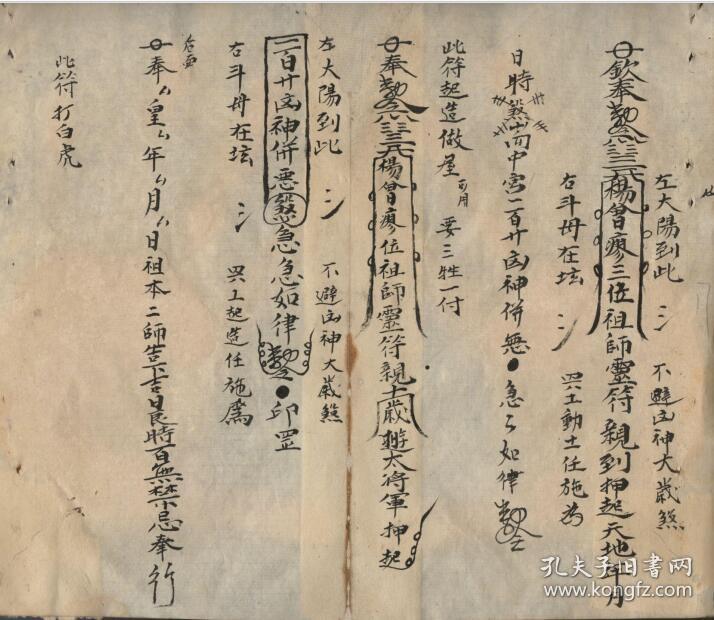 左大陽到此 不避凶神大歲煞
奉勅令 楊曾廖三位祖師靈符親到押起天地年月
右斗母在坛 兴工動土任施為
日時煞 中宮一百廿凶神併 急々如律勅令
此符起造做屋可用 要三牲一付
奉勅令 楊曾廖位祖師靈符親 太歲 太将軍押起
左大陽到此 不避凶神大歲煞
一百廿凶神併惡煞急急如律勅令 印罡
右斗母在坛 兴工起造任施為
奉 皇 年 月 日祖本二師 吉日良時百無禁忌奉行
此符打白虎
孔夫子旧书网
kongfz.com